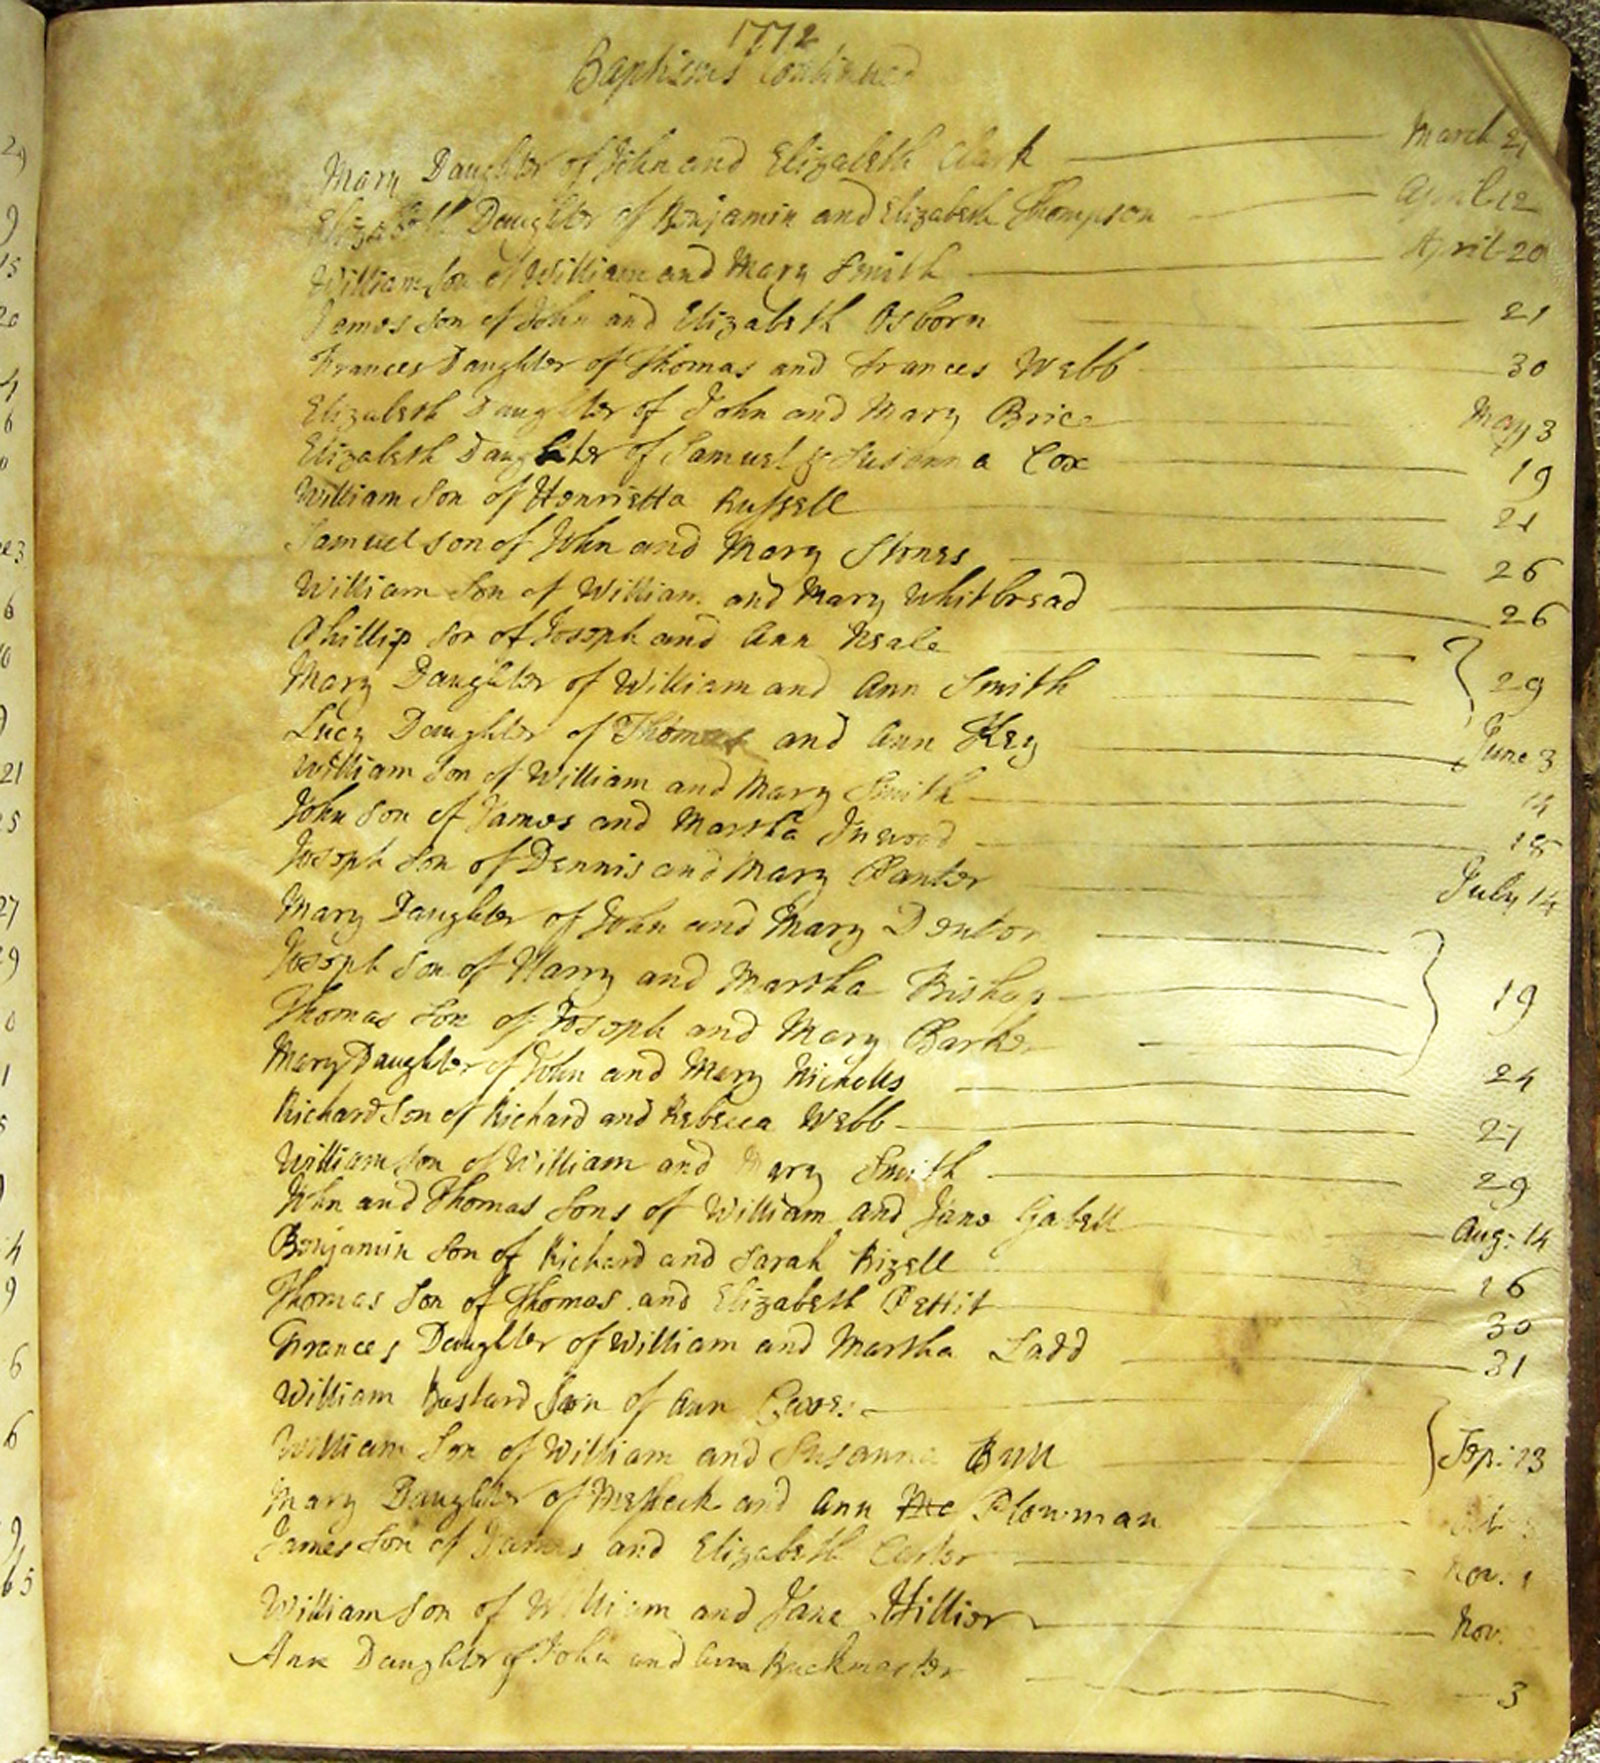 1772
Baptisms Continued
Mary Daughter of John and Elizabeth Clark March 21
Elizabeth Daughter of Benjamin and Elizabeth Thompson April 12
William Son of William and Mary Smith April 20
James Son of John and Elizabeth Osborn 21
Frances Daughter of Thomas and Frances Webb 30
Elizabeth Daughter of John and Mary Brice May 3
Elizabeth Daughter of Samuel & Susanna Cox 19
William Son of Henrietta Russell 21
Samuel son of John and Mary Stones 26
William Son of William and Mary Whitbread 26
Phillip Son of Joseph and Ann Neale
Mary Daughter of William and Ann Smith 29
Lucy Daughter of Thomas and Ann Key June 3
William Son of William and Mary Smith 14
John Son of James and Martha Inwood 18
Joseph Son of Dennis and Mary Panter July 14
Mary Daughter of John and Mary Denton
Joseph Son of Harry and Martha Bishop 19
Thomas Son of Joseph and Mary Barker
Mary Daughter of John and Mary Nicholls 24
Richard Son of Richard and Rebecca Webb 27
William Son of William and Mary Smith 29
John and Thomas Sons of William and Jane Gabell Aug: 14
Benjamin Son of Richard and Sarah Rizell 16
Thomas Son of Thomas and Elizabeth Pettit 30
Frances Daughter of William and Martha Ladd 31
William Bastard Son of Ann
William Son of William and Susanna Bull Sep: 13
Mary Daughter of Mesheck and Ann Plowman
James Son of James and Elizabeth Carter Nov. 1
William Son of William and Jane Hillier Nov.
Ann Daughter of John and Ann Buckmaster 3